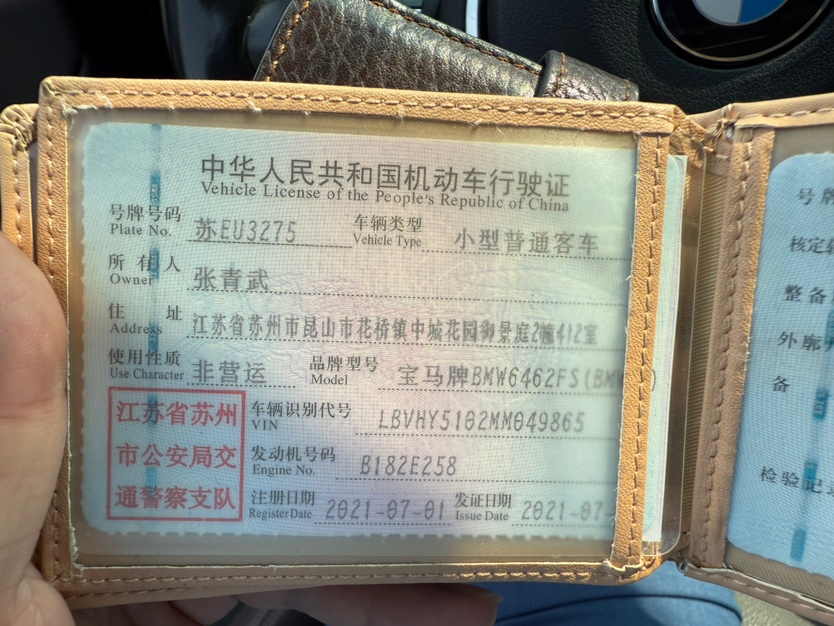 中华人民共和国机动车行驶证
Vehicle License of the People's Republic of China
号牌号码 苏EU3275 车辆类型 小型普通客车
Plate No. Vehicle Type
所有人 张青武
Owner
住址 江苏省苏州市昆山市花桥镇中城花园御景庭2幢412室
Address
使用性质 非营运 品牌型号 宝马牌BMW6462FS(BM
Use Character Model
江苏省苏州 车辆识别代号 LBVHY5102MM049865
VIN
市公安局交 发动机号码 B182E258
Engine No.
通警察支队 注册日期 2021-07-01 发证日期 2021-07-
Register Date Issue Date
号牌
核定
整备
外廓
备
检验记